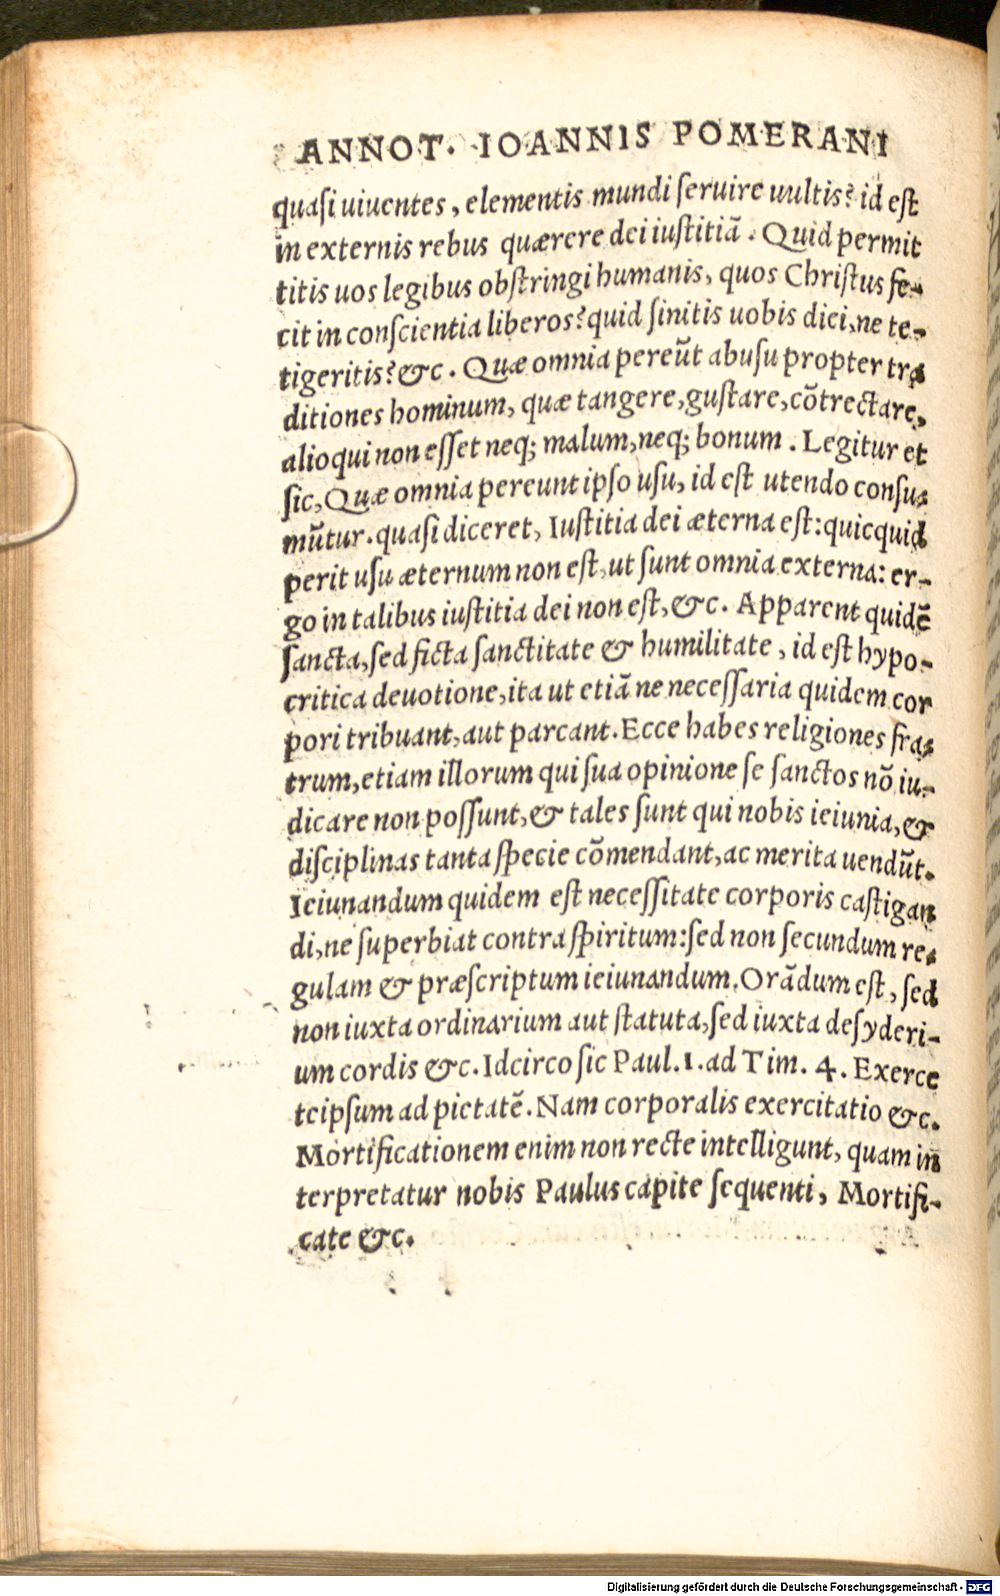 ANNOT. IOANNIS POMERANI
quasi uiuentes, elementis mundi seruire uultis? id est
in externis rebus quærere dei iustitiã. Quid permit
titis uos legibus obstringi humanis, quos Christus fe-
cit in conscientia liberos? quid sinitis uobis dici, ne te-
tigeritis? &c. Quæ omnia pereũt abusu propter tra
ditiones hominum, quæ tangere, gustare, cõtrectare,
alioqui non esset neq; malum, neq; bonum. Legitur et
sic, Quæ omnia pereunt ipso usu, id est utendo consu-
mũtur. quasi diceret, Iustitia dei æterna est: quicquid
perit usu æternum non est, ut sunt omnia externa: er-
go in talibus iustitia dei non est, &c. Apparent quidẽ
sancta, sed ficta sanctitate & humilitate, id est hypo-
critica deuotione, ita ut etiã ne necessaria quidem cor
pori tribuant, aut parcant. Ecce habes religiones fra-
trum, etiam illorum qui sua opinione se sanctos nõ iu-
dicare non possunt, & tales sunt qui nobis ieiunia, &
disciplinas tanta specie cõmendant, ac merita uendũt.
Ieiunandum quidem est necessitate corporis castigan
di, ne superbiat contra spiritum: sed non secundum re-
gulam & præscriptum ieiunandum. Orãdum est, sed
non iuxta ordinarium aut statuta, sed iuxta desyderi-
um cordis &c. Idcirco sic Paul. 1. ad Tim. 4. Exerce
teipsum ad pietatẽ. Nam corporalis exercitatio &c.
Mortificationem enim non recte intelligunt, quam in
terpretatur nobis Paulus capite sequenti, Mortifi-
cate &c.
Digitalisierung gefördert durch die Deutsche Forschungsgemeinschaft - DFG